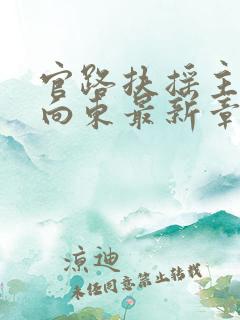 官路扶摇主
向东最新章
凉迪
未经同意禁止转载